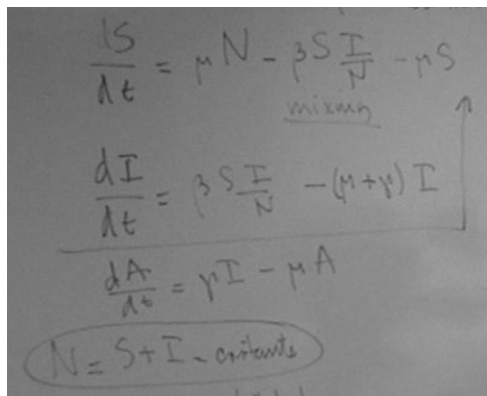 dS/dt = μN - βS I/N - μS
mixing
dI/dt = βS I/N - (μ+γ) I
dA/dt = γI - μA
N = S + I -